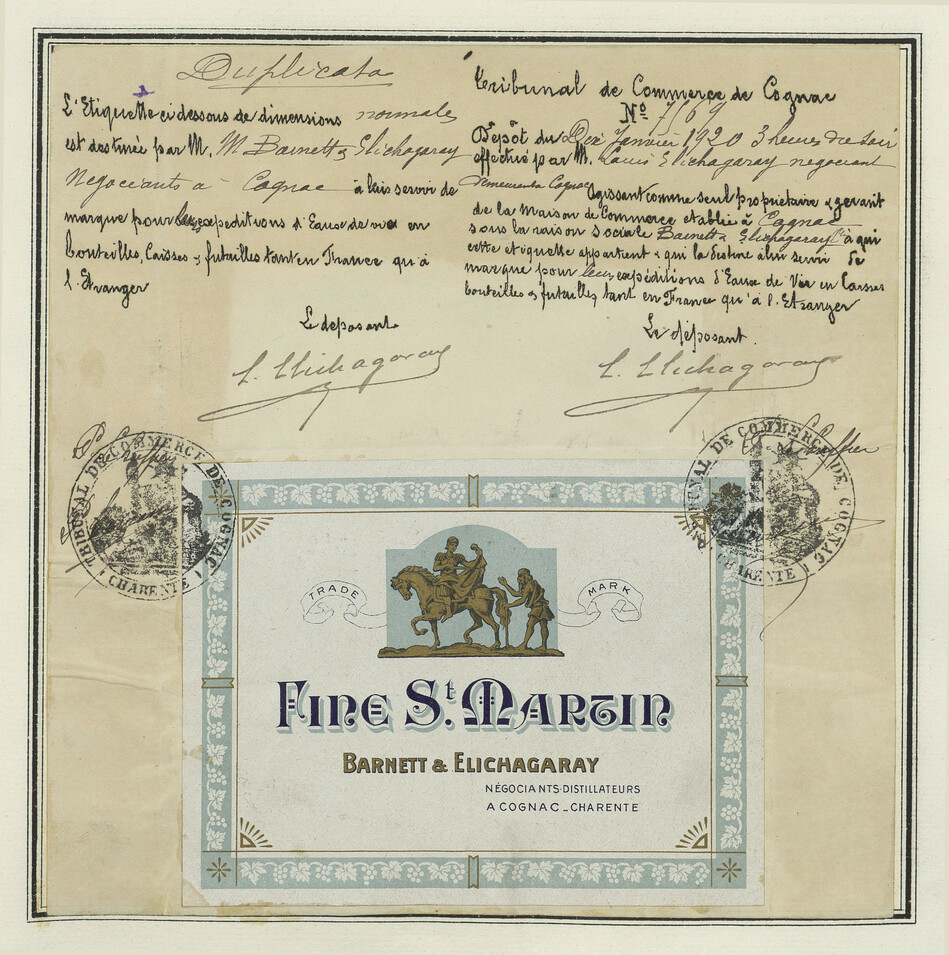 Duplicata
L'Etiquette ci dessous de dimensions normales
est destinée par M. M Barnett & Elichagaray
Négociants à Cognac à lais servir de
marque pour leurs expeditions d'Eaux de vie en
bouteilles, Caisses & futailles tant en France qu'à
l'Etranger
Le déposant
L. Elichagaray
Tribunal de Commerce de Cognac
No 7169
Dépôt du Janvier 1920 3 heures de soir
effectué par M. Louis Elichagaray négociant
demeurant à Cognac Agissant comme seul propriétaire & gerant
de la Maison de Commerce etablie à Cognac
sous la raison sociale Barnett & Elichagaray à qui
cette etiquette appartient & qui la destine servir de
marque pour leurs expéditions d'Eaux de Vie en Caisses
bouteilles & futailles tant en France qu'à l'Etranger
Le déposant.
L. Elichagaray
TRIBUNAL DE COMMERCE DE COGNAC
CHARENTE
TRIBUNAL DE COMMERCE DE COGNAC
CHARENTE
TRADE MARK
FINE St. MARTIN
BARNETT & ELICHAGARAY
NÉGOCIANTS-DISTILLATEURS
A COGNAC_CHARENTE